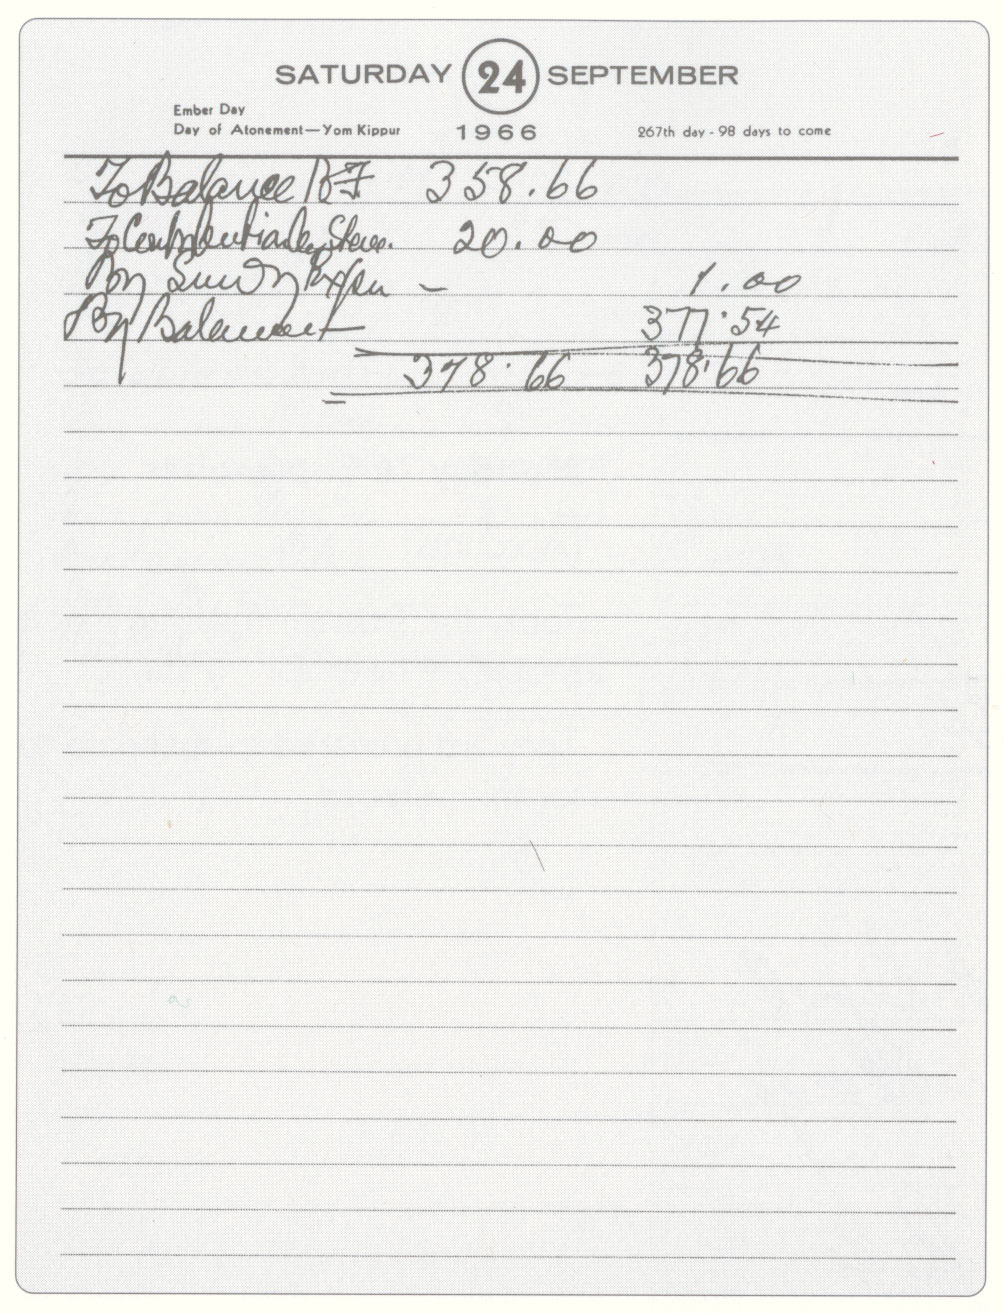 SATURDAY 24 SEPTEMBER
Ember Day
Day of Atonement—Yom Kippur 1966 267th day - 98 days to come
To Balance BF 358.66
To 20.00
By Sundry Expen - 1.00
By Balance 377.54
378.66 378.66